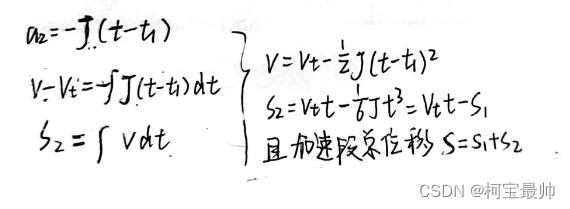 a₂=-J(t-t₁)
V-Vt=-∫J(t-t₁)dt
S₂=∫Vdt
V=Vt-½J(t-t₁)²
S₂=Vtt-⅙Jt³=Vtt-S₁
且加速段总位移S=S₁+S₂
CSDN @柯宝最帅